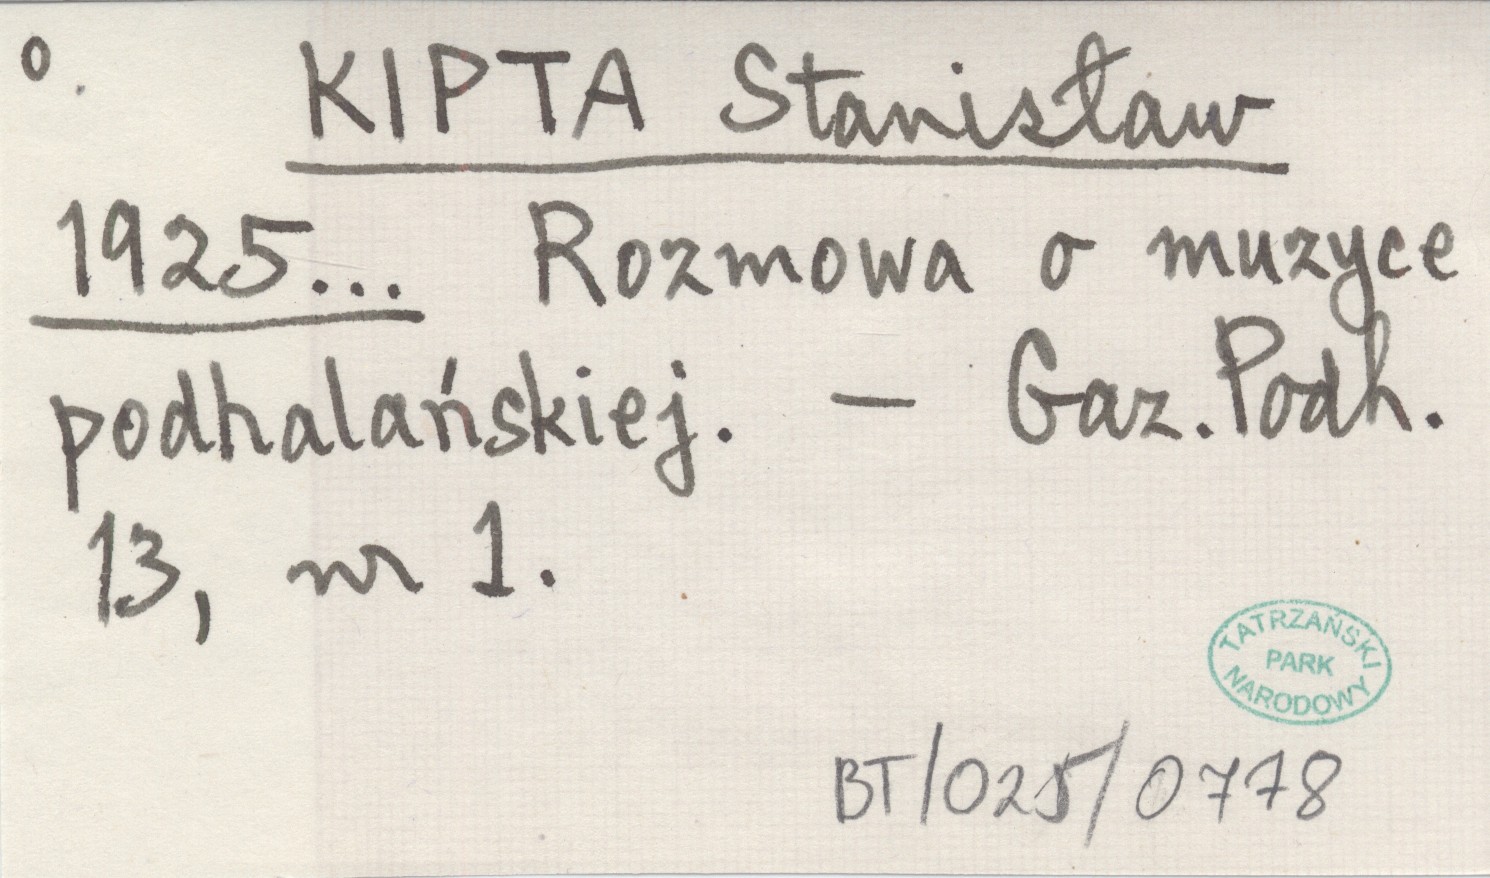 o.
KIPTA Stanisław
1925... Rozmowa o muzyce
podhalańskiej. — Gaz. Podh.
13, nr 1.
TATRZAŃSKI
PARK
NARODOWY
BT/025/0778